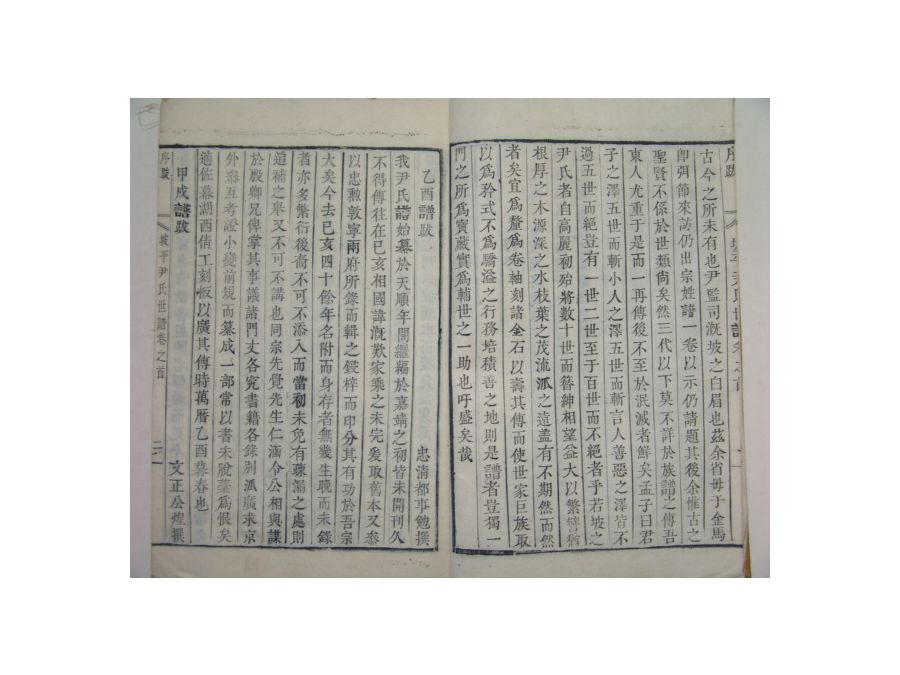 序跋
坡平尹氏世譜卷之首
古今之所未有也尹監司漑坡之白眉也茲余省毋于金馬
卽弭節來訪仍出宗姓譜一卷以示仍請題其後余惟古之
聖賢不係於世類尙矣然三代以下莫不詳於族譜之傳吾
東人尤重于是而一再傳後不至於泯滅者鮮矣孟子曰君
子之澤五世而斬小人之澤五世而斬言人善惡之澤皆不
過五世而絕豈有一世二世至于百世而不絕者乎若坡之
尹氏者自高麗初殆將數十世而簪紳相望益大以繁譬猶
根厚之木源深之水枝葉之茂流派之遠盖有不期然而然
者矣宜爲釐爲卷軸刻諸金石以壽其傳而使世家巨族取
以爲矜式不爲驕溢之行務培積善之地則是譜者豈獨一
門之所爲寶藏實爲輔世之一助也吁盛矣哉
乙酉譜跋
忠淸都事勉撰
我尹氏譜始纂於天順年間繼編於嘉靖之初皆未開刊久
不得傳往在已亥相國諱漑歎家乘之未完爰取舊本又叅
以忠勳敦寧兩府所錄而輯之鋟梓而印分其有功於吾宗
大矣今去已亥四十餘年名附而身存者無幾生晚而未錄
者亦多繁衍後裔不可不添入而當初未免有疎漏之處則
追補之舉又不可不講也同宗先覺先生仁涵令公相與謀
於殷卿兄俾掌其事議諸門丈各究書籍各錄別派廣求京
外叅互考證小變前規而纂成一部常以書未脫藁爲恨矣
適佐幕湖西倩工刻板以廣其傳時萬曆乙酉暮春也
甲戌譜跋
文正公煌撰
序跋
坡平尹氏世譜卷之首
二